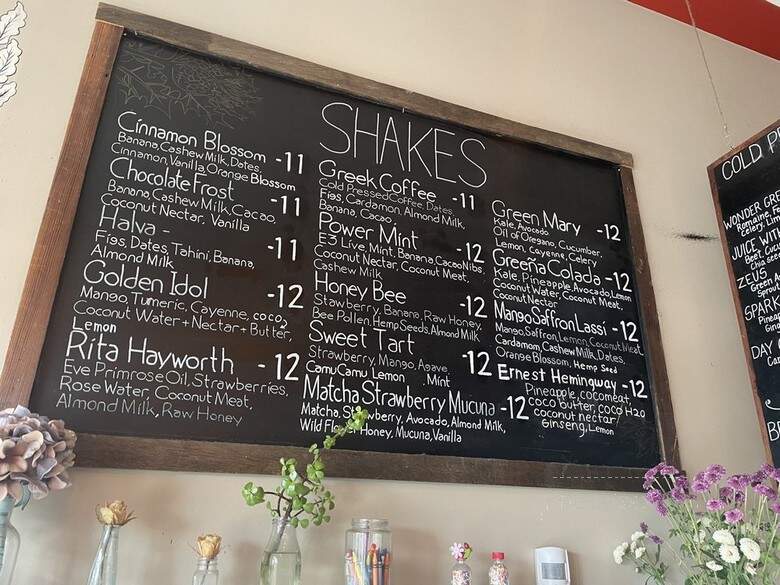 SHAKES
Cinnamon Blossom -11
Banana, Cashew Milk, Dates,
Cinnamon, Vanilla, Orange Blossom
Chocolate Frost -11
Banana, Cashew Milk, Cacao,
Coconut Nectar, Vanilla
Halva - -11
Figs, Dates, Tahini, Banana,
Almond Milk
Golden Idol -12
Mango, Tumeric, Cayenne, coco,
Coconut Water + Nectar + Butter,
Lemon
Rita Hayworth - 12
Eve Primrose Oil, Strawberries,
Rose Water, Coconut Meat,
Almond Milk, Raw Honey
Greek Coffee -11
Cold Pressed Coffee, Dates,
Figs, Cardamon, Almond Milk,
Banana, Cacao,
Power Mint -12
E3 Live, Mint, Banana, Cacao Nibs,
Coconut Nectar, Coconut Meat,
Cashew Milk
Honey Bee -12
Stawberry, Banana, Raw Honey,
Bee Pollen, Hemp Seeds, Almond Milk
Sweet Tart -12
Strawberry, Mango, Agave
CamuCamu Lemon, Mint
Matcha Strawberry Mucuna -12
Matcha, Strawberry, Avocado, Almond Milk,
Wild Flower Honey, Mucuna, Vanilla
Green Mary -12
Kale, Avocado
Oil of Oregano, Cucumber,
Lemon, Cayenne, Celery
Greeña Colada -12
Kale, Pineapple, Avocado, Lemon
Coconut Water, Coconut Meat,
Coconut Nectar
Mango Saffron Lassi -12
Mango, Saffron, Lemon, Coconut Meat
Cardamom, Cashew Milk, Dates,
Orange Blossom, Hemp Seed
Ernest Hemingway -12
Pineapple, cocomeat,
coco butter, coco H2O
coconut nectar,
Ginseng, Lemon
COLD P
WONDER GR
Romaine
Celery
JUICE WIT
Beet
Chia
ZEUS
Green A
SPARK
DAY